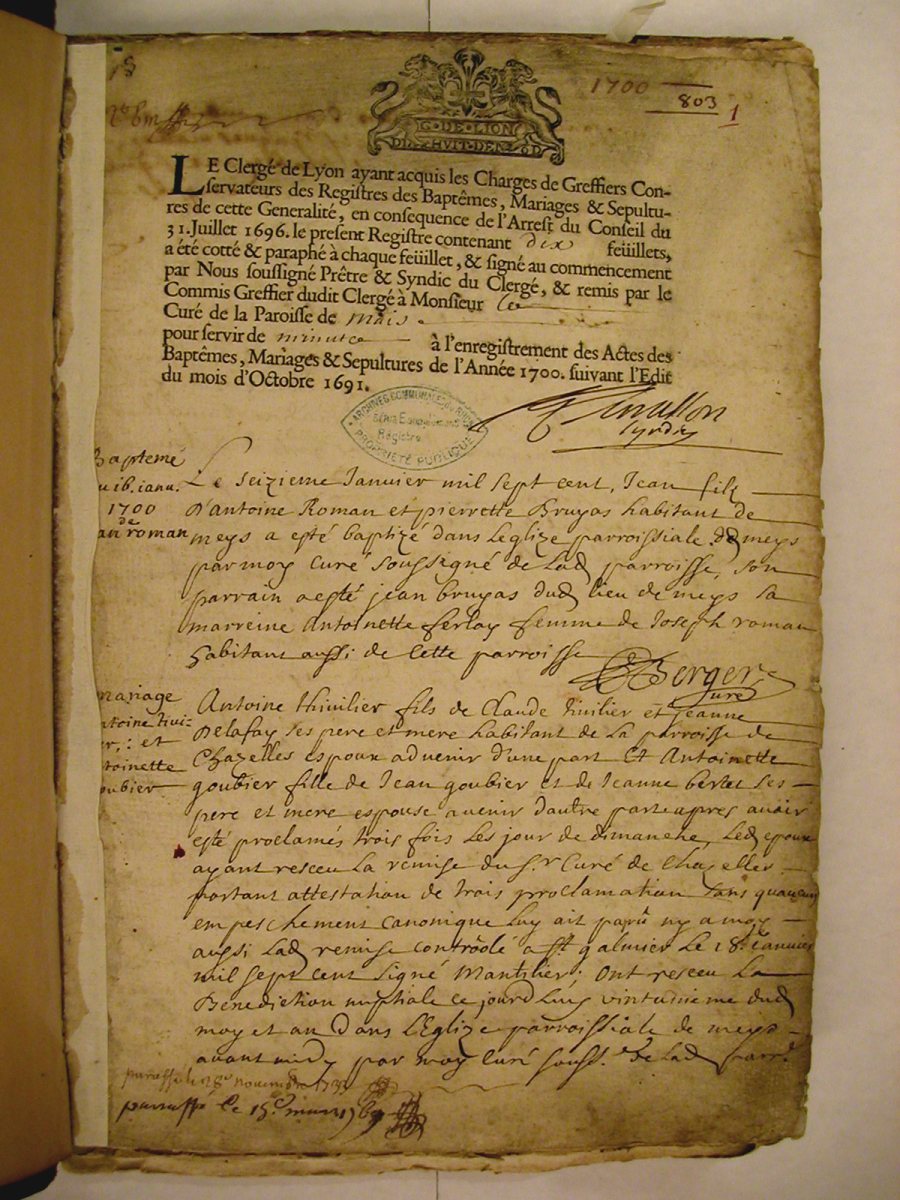 1700
803
1
G. DE. LION
DIX-HUIT. DEN.
LE Clergé de Lyon ayant acquis les Charges de Greffiers Con-
servateurs des Registres des Baptêmes, Mariages & Sepultu-
res de cette Generalité, en consequence de l'Arrest du Conseil du
31. Juillet 1696. le present Registre contenant dix feüillets,
a été cotté & paraphé à chaque feüillet, & signé au commencement
par Nous soussigné Prêtre & Syndic du Clergé, & remis par le
Commis Greffier dudit Clergé à Monsieur Le
Curé de la Paroisse de Mais
pour servir de minutte à l'enregistrement des Actes des
Baptêmes, Mariages & Sepultures de l'Année 1700. suivant l'Edit
du mois d'Octobre 1691.
ARCHIVES COMMUNALES DU RHÔNE
Registre
PROPRIÉTÉ PUBLIQUE
syndic
Bapteme
du 16. ianu.
1700
de
Jean roman
Le seizieme Janvier mil sept cent, Jean fils
d'Antoine Roman et pierrette Bruyas habitant de
meys a esté baptizé dans Leglize parroissiale dud meys
par moy Curé soussigné de Lad parroisse, son
parrain a esté jean bruyas dud lieu de meys sa
marreine Antoinette ferlay femme de Joseph roman
habitant aussi de Cette parroisse
Berger
curé
mariage
antoine tivi-
lier, : et
antoinette
goubier
Antoine thivilier fils de Claude tivilier et jeanne
Delafay ses pere et mere habitant de La parroisse de
Chazelles espoux advenir d'une part Et Antoinette
goubier fille de Jean goubier et de Jeanne bertet ses
pere et mere espouse avenir dautre part apres avoir
esté proclamés trois fois Les jour de dimanche, Led epoux
ayant resceu La remise du Sr Curé de Chazelles
portant attestation de trois proclamation sans quaucun
empeschement canonique Luy ait parû ny a moy
aussi Lad remise controôlé a St galmier Le 18e Janvier
mil sept cent signé Mantelier; ont resceu La
Benediction nuptiale ce jourdhuy vintunieme dud
moy et an dans LEglize parroissiale de meys
avant midy par moy Curé souss. de Lad parr.
paraffé le 28e novembre
paraffé Le 15e mars